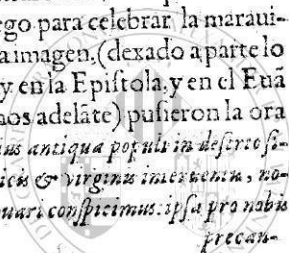 ego para celebrar la maraui-
a imagen, (dexado a parte lo
y en la Epistola, y en el Euã
nos adelãte) pusieron la ora
ius antiqua populi in deserto si-
icis & virginis interuentu, no-
uari conspicimus: ipsa pro nobis
precan-